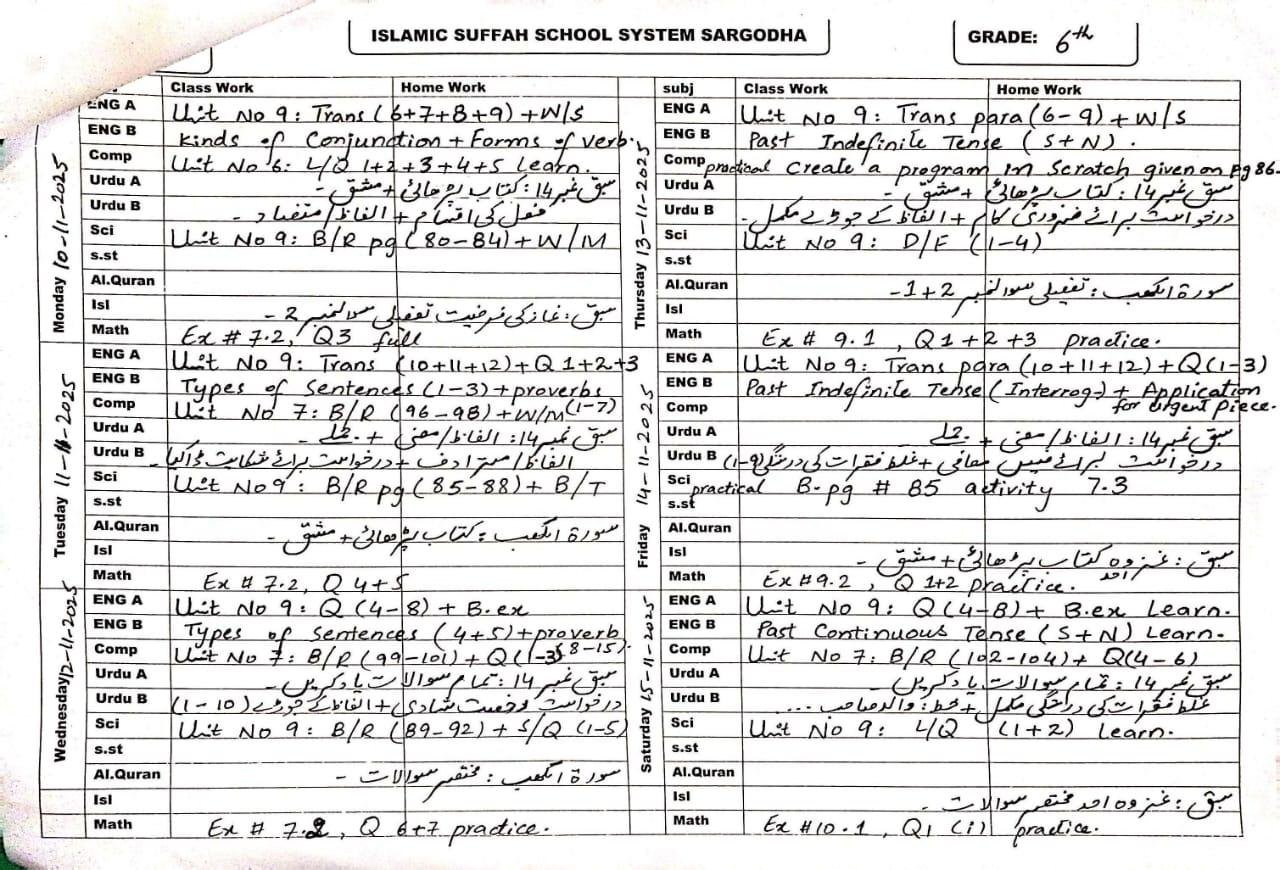 ISLAMIC SUFFAH SCHOOL SYSTEM SARGODHA
GRADE: 6th
Class Work Home Work
Monday 10-11-2025
ENG A Unit No 9: Trans (6+7+8+9) + W/S
ENG B Kinds of Conjunction + Forms of verb.
Comp Unit No 6: L/Q 1+2+3+4+5 Learn.
Urdu A سبق نمبر 14: کتاب پڑھائی + مشق -
Urdu B فعل کی اقسام + الفاظ/متضاد -
Sci Unit No 9: B/R pg (80-84) + W/M
s.st
Al.Quran
Isl سبق: نماز کی فرضیت تفصیلی سوال نمبر 2 -
Math Ex # 7.2, Q3 full
Tuesday 11-11-2025
ENG A Unit No 9: Trans (10+11+12) + Q 1+2+3
ENG B Types of Sentences (1-3) + proverbs
Comp Unit No 7: B/R (96-98) + W/M (1-7)
Urdu A سبق نمبر 14: الفاظ/معنی + جملے -
Urdu B الفاظ/مترادف + درخواست برائے شکایت
Sci Unit No 9: B/R pg (85-88) + B/T
s.st
Al.Quran سورۃ الکہف: کتاب پڑھائی + مشق -
Isl
Math Ex # 7.2, Q 4+5
Wednesday 12-11-2025
ENG A Unit No 9: Q (4-8) + B.ex
ENG B Types of Sentences (4+5) + proverb (8-15).
Comp Unit No 7: B/R (99-101) + Q (1-3)
Urdu A سبق نمبر 14: تمام سوالات یاد کریں -
Urdu B درخواست رخصت شادی + الفاظ کے جوڑے (1-10)
Sci Unit No 9: B/R (89-92) + S/Q (1-5)
s.st
Al.Quran سورۃ الکہف: مختصر سوالات -
Isl
Math Ex # 7.2, Q 6+7 practice.
subj Class Work Home Work
Thursday 13-11-2025
ENG A Unit No 9: Trans para (6-9) + W/S
ENG B Past Indefinite Tense (S+N).
Comp practical Create a program in Scratch given on pg 86.
Urdu A سبق نمبر 14: کتاب پڑھائی + مشق -
Urdu B درخواست برائے ضروری کام + الفاظ کے جوڑے مکمل -
Sci Unit No 9: D/F (1-4)
s.st
Al.Quran سورۃ الکہف: تفصیلی سوال نمبر 1+2 -
Isl
Math Ex # 9.1, Q 1+2+3 practice.
Friday 14-11-2025
ENG A Unit No 9: Trans para (10+11+12) + Q (1-3)
ENG B Past Indefinite Tense (Interrog-) + Application for urgent piece.
Comp
Urdu A سبق نمبر 14: الفاظ/معنی + جملے
Urdu B درخواست برائے فیس معافی + غلط فقرات کی درستگی (1-9)
Sci practical B.pg # 85 activity 7.3
s.st
Al.Quran
Isl سبق: غزوہ احد کتاب پڑھائی + مشق -
Math Ex # 9.2, Q 1+2 practice.
Saturday 15-11-2025
ENG A Unit No 9: Q (4-8) + B.ex Learn.
ENG B Past Continuous Tense (S+N) Learn.
Comp Unit No 7: B/R (102-104) + Q (4-6)
Urdu A سبق نمبر 14: تمام سوالات یاد کریں -
Urdu B غلط فقرات کی درستگی مکمل + خط: والد صاحب ...
Sci Unit No 9: L/Q (1+2) Learn.
s.st
Al.Quran
Isl سبق: غزوہ احد مختصر سوالات -
Math Ex # 10.1, Q1 (i) practice.